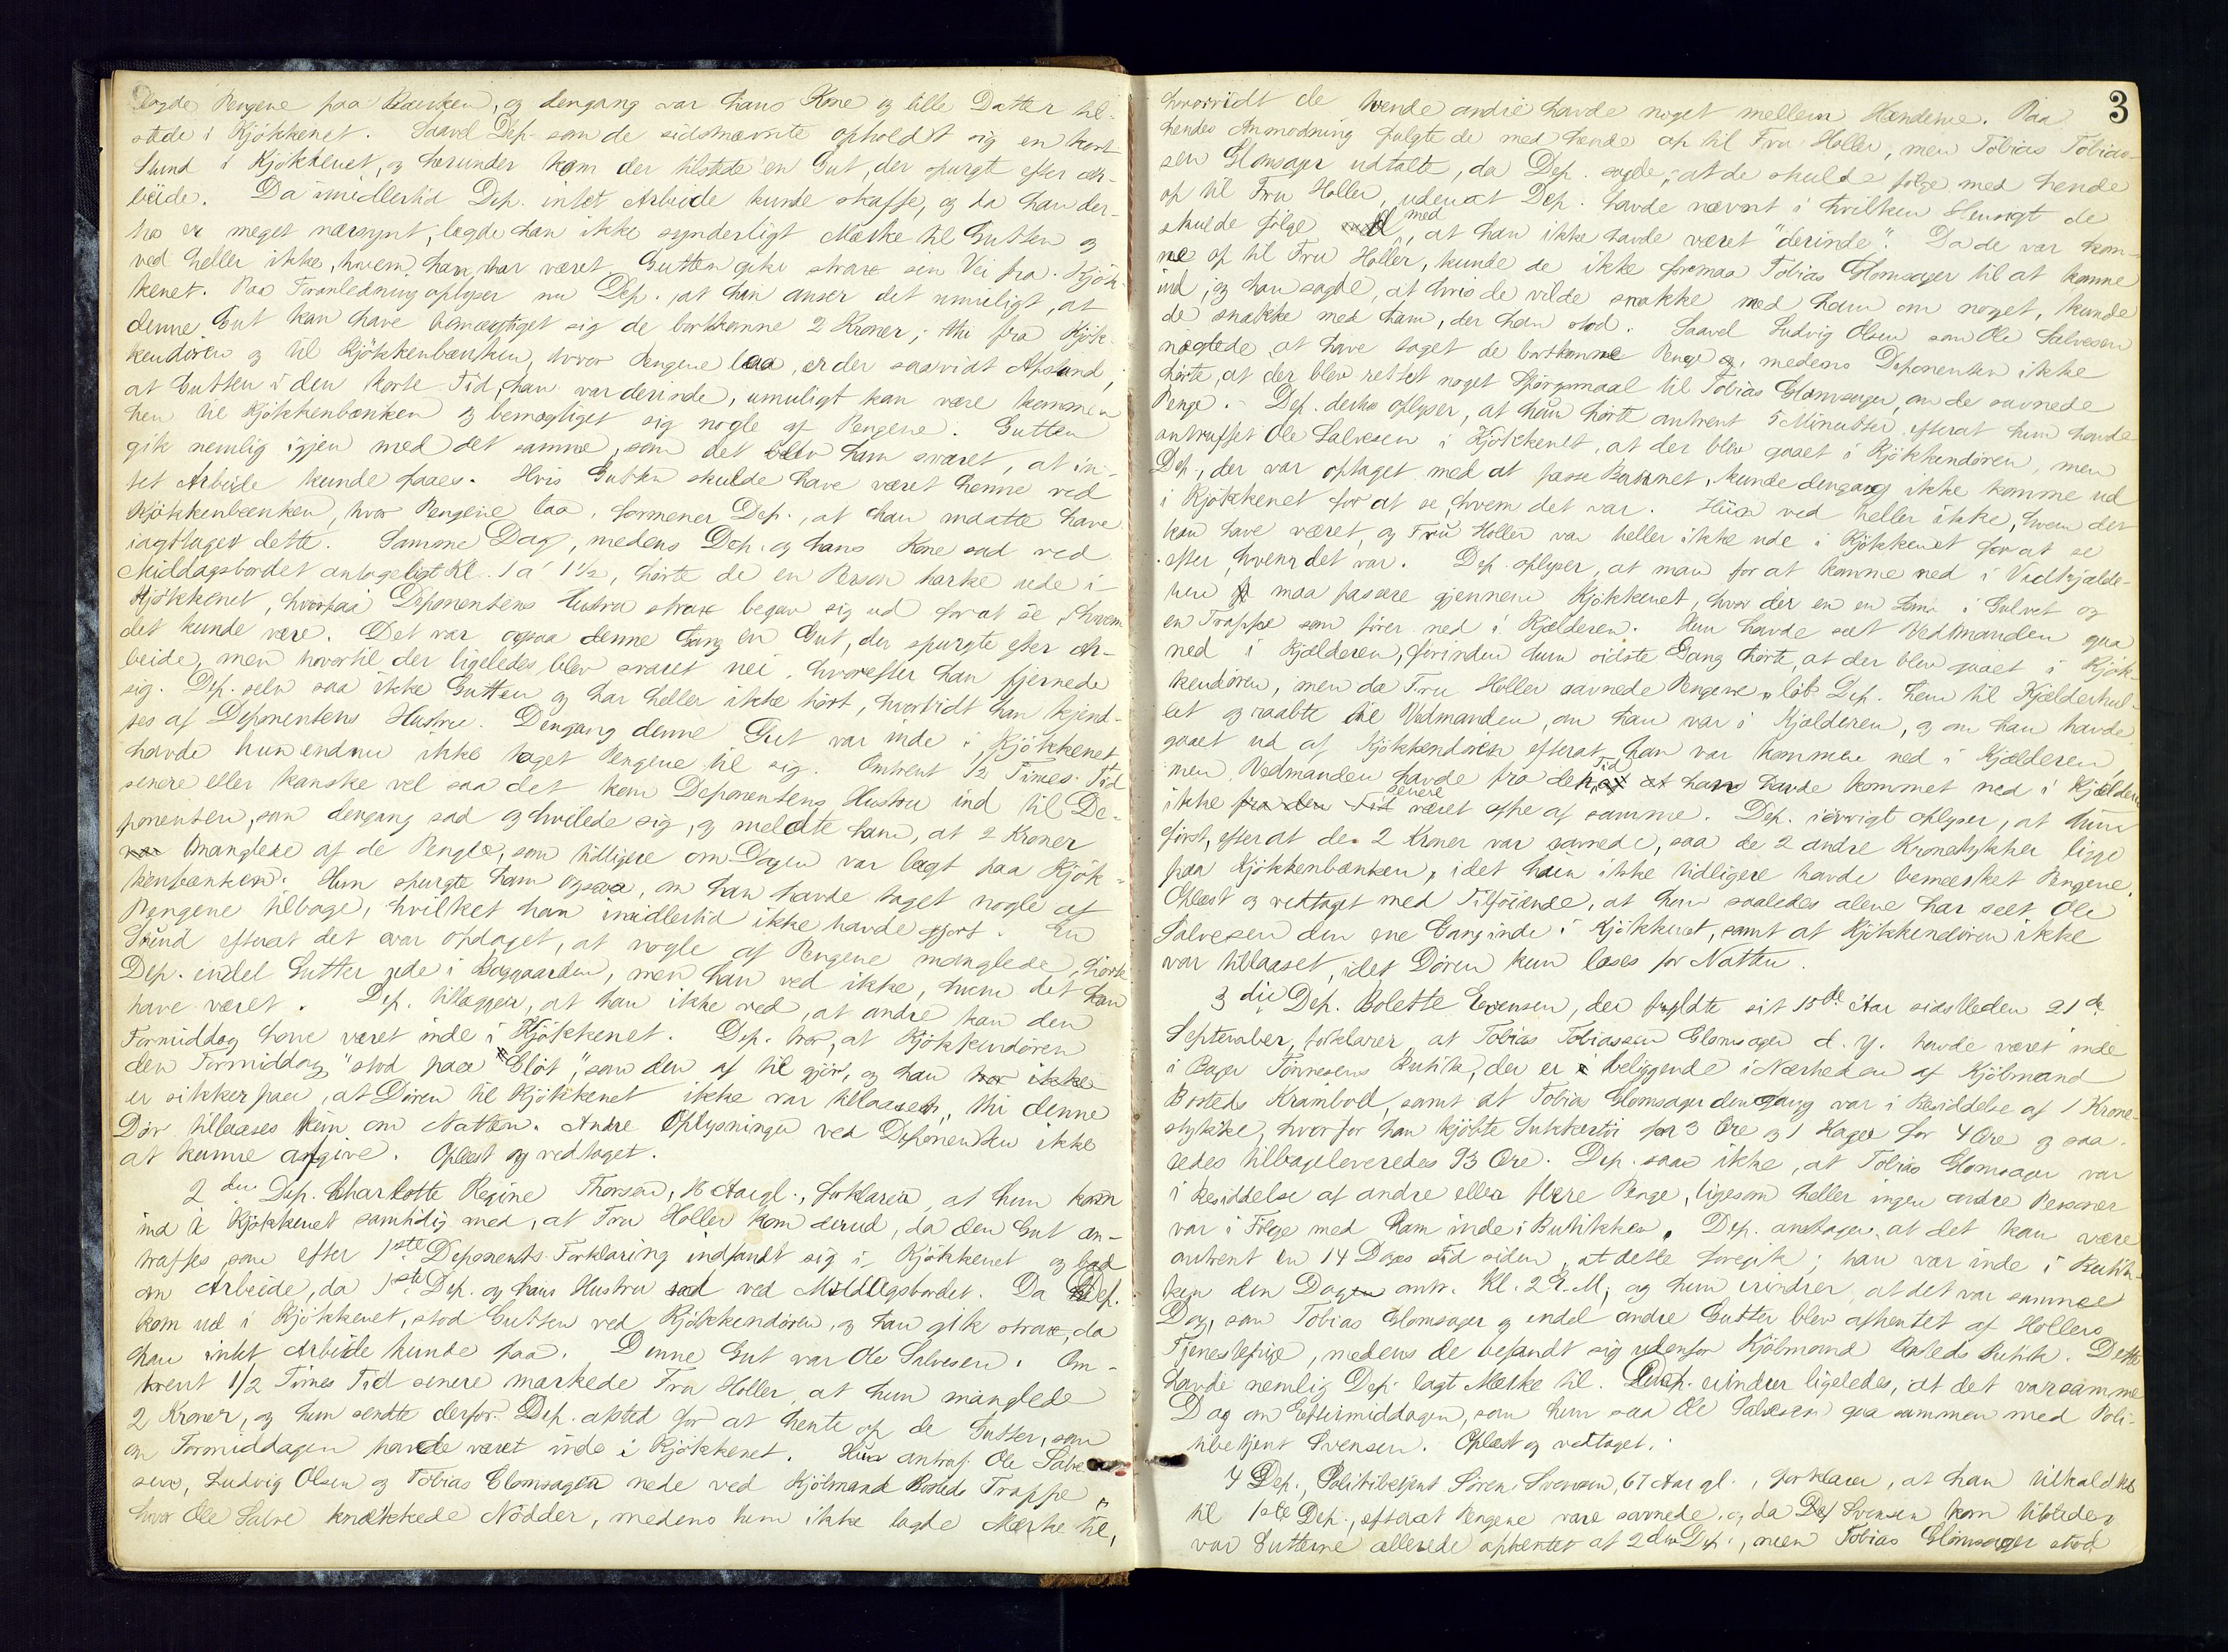 lagde Pengene paa Bænken, og dengang var hans Kone og lille Datter til-
stede i Kjökkenet. Saavel Dep. som de sidstnævnte opholdt sig en kort
Stund i Kjökkenet, og herunder kom der tilstede en Gut, der spurgte efter Ar-
beide. Da imidlertid Dep. intet Arbeide kunde skaffe, og da han der-
hos er meget nærsynt, lagde han ikke synderligt Mærke til Gutten og
ved heller ikke, hvem han har været. Gutten gik strax sin Vei fra Kjök-
kenet. Paa Foranledning oplyser nu Dep., at han anser det umuligt, at
denne Gut kan have bemægtiget sig de bortkomne 2 Kroner; thi fra Kjök-
kendören og til Kjökkenbænken, hvor Pengene laa, er der saavidt Afstand,
at Gutten i den korte Tid, han var derinde, umuligt kan være kommen
hen til Kjökkenbænken og bemægtiget sig nogle af Pengene. Gutten
gik nemlig igjen med det samme, som det blev ham svaret, at in-
tet Arbeide kunde faaes. Hvis Gutten skulde have været henne ved
Kjökkenbænken, hvor Pengene laa, formener Dep., at han maatte have
iagttaget dette. Samme Dag, medens Dep. og hans Kone sad ved
Middagsbordet antageligt Kl. 1 a 1½, hörte de en Person harke ude i
Kjökkenet, hvorpaa Deponentens Hustru strax begav sig ud for at se, hvem
det kunde være. Det var ogsaa denne Gang en Gut, der spurgte efter Ar-
beide, men hvortil der ligeledes blev svaret nei, hvorefter han fjernede
sig. Dep. selv saa ikke Gutten og har heller ikke hört, hvorvidt han kjend-
tes af Deponentens Hustru. Dengang denne Gut var inde i Kjökkenet
havde hun endnu ikke taget Pengene til sig. Omtrent ½ Times Tid
senere eller kanske vel saa det kom Deponentens Hustru ind til De-
ponenten, som dengang sad og hvilede sig, og meldte ham, at 2 Kroner
manglede af de Penge, som tidligere om Dagen var lagt paa Kjök-
kenbænken. Hun spurgte ham ogsaa, om han havde taget nogle af
Pengene tilbage, hvilket han imidlertid ikke havde gjort. En
Stund efterat det var opdaget, at nogle af Pengene manglede, hörte
Dep. endel Gutter ude i Baggaarden, men han ved ikke, hvem det kan
have været. Dep. tillægger, at han ikke ved, at andre kan den
Formiddag have været inde i Kjökkenet. Dep. tror, at Kjökkendören
den Formiddag "stod paa Glöt", som den af til gjör, og han tror ikke
er sikker paa, at Dören til Kjökkenet ikke var tillaaset, thi denne
Dör tillaases kun om Natten. Andre Oplysninger ved Deponenten ikke
at kunne angive. Oplæst og vedtaget.
2den Dep. Charlotte Regine Thorsen, 16 Aar gl., forklarer, at hun kom
ind i Kjökkenet samtidig med, at Fru Holler kom derud, da den Gut an-
traffes, som efter 1ste Deponents Forklaring indfandt sig i Kjökkenet og bad
om Arbeide, da 1ste Dep. og hans Hustru sad ved Middagsbordet. Da Dep.
kom ud i Kjökkenet, stod Gutten ved Kjökkendören, og han gik strax, da
han intet Arbeide kunde faa. Denne Gut var Ole Salvesen. Om-
trent 1/2 Times Tid senere mærkede Fru Holler, at hun manglede
2 Kroner, og hun sendte derfor Dep. afsted for at hente op de Gutter, som
om Formiddagen havde været inde i Kjökkenet. Hun antraf Ole Salve-
sen, Ludvig Olsen og Tobias Glomsager nede ved Kjöbmand Bosteds Trappe,
hvor Ole Salve knækkede Nödder, medens hun ikke lagde Mærke til,
3
hvorvidt de tvende andre havde noget mellem Hænderne. Paa
hendes Anmodning fulgte de med hende op til Fru Holler, men Tobias Tobias-
sen Glomsager udtalte, da Dep. sagde, at de skulde fölge med hende
op til Fru Holler, uden at Dep. havde nævnt i hvilken Hensigt de
skulde fölge med, at han ikke havde været "derinde". Da de var kom-
ne op til Fru Holler, kunde de ikke formaa Tobias Glomsager til at komme
ind, og han sagde, at hvis de vilde snakke med ham om noget, kunde
de snakke med ham, der han stod. Saavel Ludvig Olsen som Ole Salvesen
nægtede at have taget de bortkomne Penge, medens Deponenten ikke
hörte, at der blev rettet noget Spörgsmaal til Tobias Glomsager om de savnede
Penge. Dep. derhos oplyser, at hun hörte omtrent 5 Minutter, efterat hun havde
antruffet Ole Salvesen i Kjökkenet, at der blev gaaet i Kjökkendören, men
Dep., der var optaget med at passe Barnet, kunde dengang ikke komme ud
i Kjökkenet for at se, hvem det var. Hun ved heller ikke, hvem det
kan have været, og Fru Holler var heller ikke ude i Kjökkenet for at se
efter, hvem det var. Dep. oplyser, at man for at komme ned i Vedkjælde-
ren maa passere gjennem Kjökkenet, hvor der er en Lem i Gulvet og
en Trappe som förer ned i Kjælderen. Hun havde seet Vedmanden gaa
ned i Kjælderen, förinden hun sidste Gang hörte, at der blev gaaet i Kjök-
kendören, men da Fru Holler savnede Pengene, löb Dep. hen til Kjælderhul-
let og raabte til Vedmanden, om han var i Kjælderen, og om han havde
gaaet ud af Kjökkendören efterat han var kommen ned i Kjælderen,
men Vedmanden havde fra den Tid, at han havde kommet ned i Kjælderen
ikke fra den Tid senere været oppe af samme. Dep. iövrigt oplyser, at hun
först, efterat de 2 Kroner var savnede, saa de 2 andre Kronestykker ligge
paa Kjökkenbænken, idet hun ikke tidligere havde bemærket Pengene.
Oplæst og vedtaget med Tilföiende, at hun saaledes alene har seet Ole
Salvesen den ene Gang inde i Kjökkenet, samt at Kjökkendören ikke
var tillaaset, idet Dören kun laases for Natten.
3die Dep. Bolette Evensen, der fyldte sit 15de Aar sidstleden 21de
September, forklarer, at Tobias Tobiassen Glomsager d. y. havde været inde
i Bager Tönnesens Butik, der er beliggende i Nærheden af Kjöbmand
Bosteds Krambod, samt at Tobias Glomsager dengang var i Besiddelse af 1 Krone-
stykke, hvorfor han kjöbte Sukkertöi for 3 Öre og 1 Kage for 4 Öre og saa-
ledes tilbageleveredes 93 Öre. Dep. saa ikke, at Tobias Glomsager var
i Besiddelse af andre eller flere Penge, ligesom heller ingen andre Personer
var i Fölge med ham inde i Butikken. Dep. antager, at det kan være
omtrent en 14 Dages Tid siden, at dette foregik; han var inde i Butik-
ken den Dag omtr. Kl. 2 E.M., og hun erindrer, at det var samme
Dag, som Tobias Glomsager og endel andre Gutter blev afhentet af Hollers
Tjenestepige, medens de befandt sig udenfor Kjöbmand Bosteds Butik. Dette
havde nemlig Dep. lagt Mærke til. Dep. erindrer ligeledes, at det var samme
Dag om Eftermiddagen, som hun saa Ole Salvesen gaa sammen med Poli-
tibetjent Svensen. Oplæst og vedtaget.
4 Dep., Politibetjent Sören Svensen, 67 Aar gl., forklarer, at han tilkaldtes
til 1ste Dep., efterat Pengene vare savnede, og da Dep Svensen kom tilstede,
var Gutterne allerede afhentet af 2den Dep., men Tobias Glomsager stod